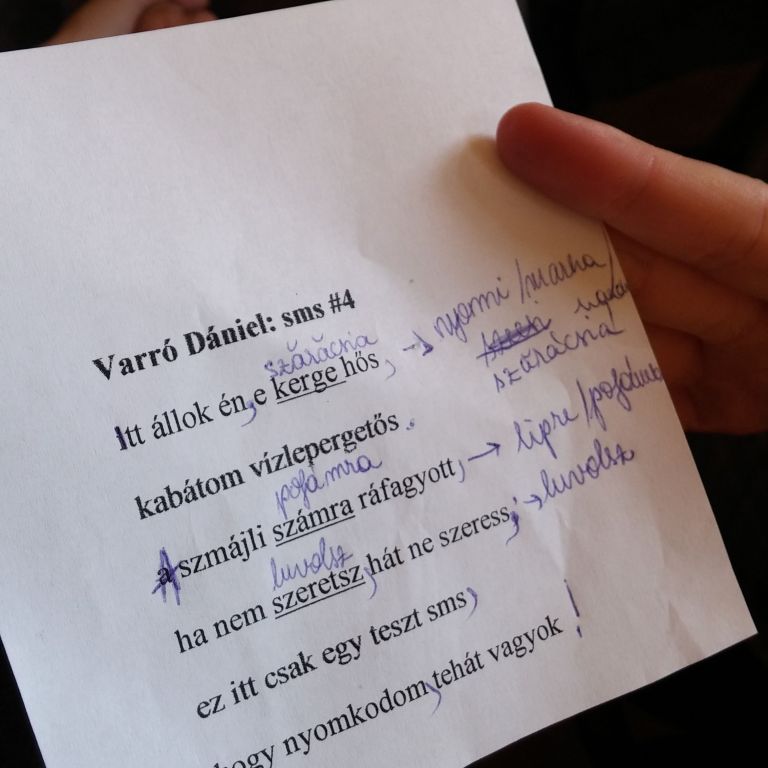 Varró Dániel: sms #4
szărăcia
Itt állok én, e kerge hős, → nyomi / marha /
szărăcia
kabátom vízlepergetős.
pofámra
A szmájli számra ráfagyott, → lipre /
luvolsz
ha nem szeretsz, hát ne szeress; → luvolsz
ez itt csak egy teszt sms,
hogy nyomkodom, tehát vagyok!